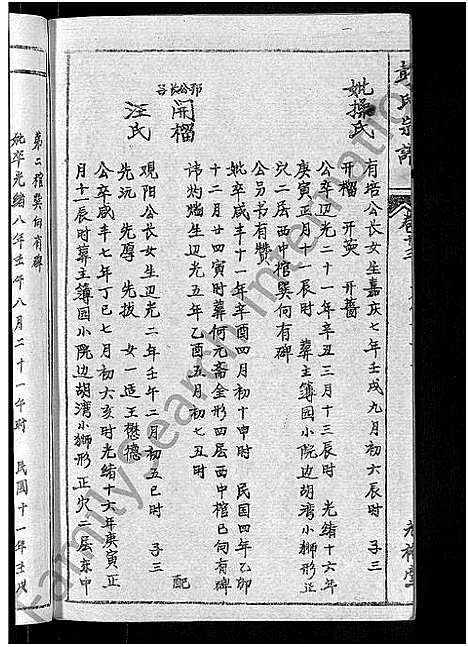 彭氏宗譜
卷十三
妣操氏
有培公長女生嘉庆七年壬戌九月初六辰时 子三
开榴 开英 开蔷
公卒道光二十一年辛丑三月十三辰时 光绪十六年
庚寅正月十一辰时 葬主簿园小院边胡湾小獅形正
穴二层西中棺巽向有碑
公另书有赞
妣卒咸丰十一年辛酉四月初十申时 民国四年乙卯
十二月廿四寅时葬何元斋金形四层西中棺巳向有碑
邦倫公長子
開榴
讳灼瑞生道光五年乙酉五月初七丑时 配
汪氏
現阳公長女生道光二年壬午二月初五巳时 子三
先沅 先厚 先拔 女一适王懋德
公卒咸丰七年丁巳七月初六亥时光绪十六年庚寅正
月十一辰时葬主簿园小院边胡湾小獅形正穴二层东中
第二棺巽向有碑
妣卒光绪八年壬午八月二十一午时 民国十一年壬戌
Family Search International